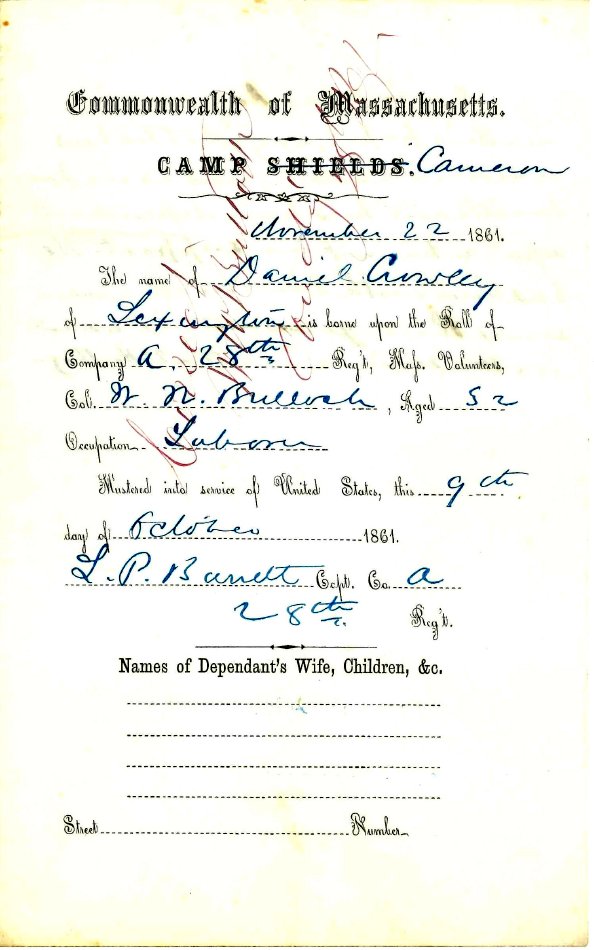 Commonwealth of Massachusetts.
CAMP SHIELDS. Cameron
November 22 1861.
The name of Daniel Crowley
of Lexington is borne upon the Roll of
Company A. 28th Reg't, Mass. Volunteers,
Col. W. N. Bullock, Aged 52
Occupation Laborer
Mustered into service of United States, this 9th
day of October 1861.
L. P. Barrett Capt. Co. A
28th Reg't.
Names of Dependant's Wife, Children, &c.
Street Number